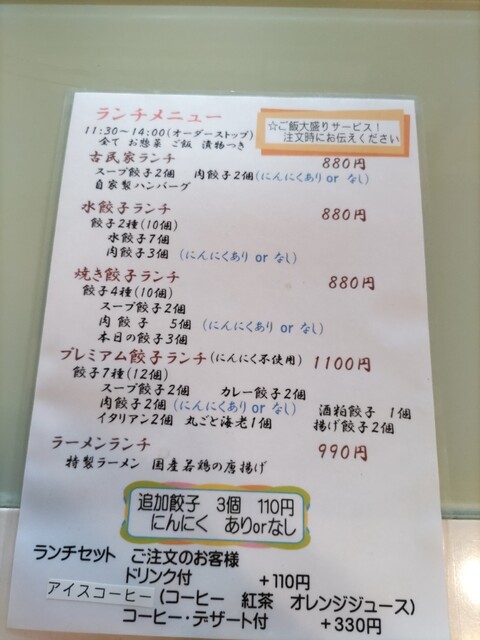 ランチメニュー
11:30～14:00(オーダーストップ)
全て お惣菜 ご飯 漬物つき
☆ご飯大盛りサービス!
注文時にお伝えください
古民家ランチ 880円
スープ餃子2個 肉餃子2個(にんにくあり or なし)
自家製ハンバーグ
水餃子ランチ 880円
餃子2種(10個)
水餃子7個
肉餃子3個 (にんにくあり or なし)
焼き餃子ランチ 880円
餃子4種(10個)
スープ餃子2個
肉餃子 5個 (にんにくあり or なし)
本日の餃子3個
プレミアム餃子ランチ(にんにく不使用) 1100円
餃子7種(12個)
スープ餃子2個 カレー餃子2個
肉餃子2個 (にんにくあり or なし) 酒粕餃子 1個
イタリアン2個 丸ごと海老1個 揚げ餃子2個
ラーメンランチ 990円
特製ラーメン 国産若鶏の唐揚げ
追加餃子 3個 110円
にんにく ありorなし
ランチセット ご注文のお客様
ドリンク付 +110円
アイスコーヒー (コーヒー 紅茶 オレンジジュース)
コーヒー・デザート付 +330円